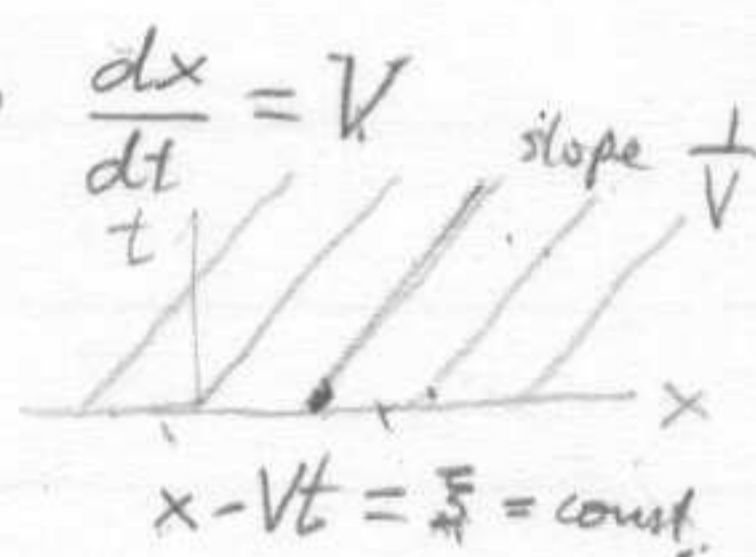 dx/dt = V
slope 1/V
t
x
x - Vt = ξ = const